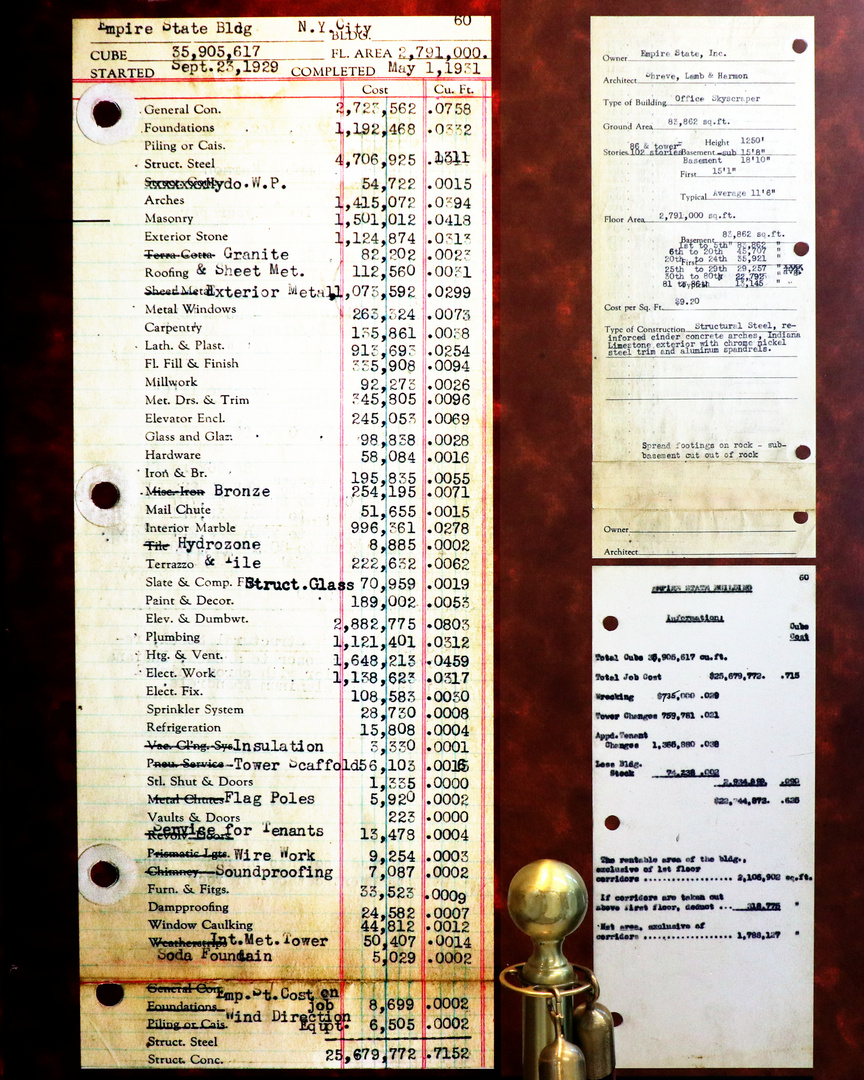 Empire State Bldg N.Y.City 60
BLDG.
CUBE 35,905,617 FL. AREA 2,791,000.
STARTED Sept.23,1929 COMPLETED May 1,1931
Cost Cu. Ft.
General Con. 2,723,562 .0758
Foundations 1,192,468 .0332
Piling or Cais.
Struct. Steel 4,706,925 .1311
Hydo.W.P. 54,722 .0015
Arches 1,415,072 .0394
Masonry 1,501,012 .0418
Exterior Stone 1,124,874 .0313
Terra Cotta Granite 82,202 .0023
Roofing & Sheet Met. 112,560 .0031
Sheet Metal Exterior Metal 1,073,592 .0299
Metal Windows 263,324 .0073
Carpentry 135,861 .0038
Lath. & Plast. 913,693 .0254
Fl. Fill & Finish 335,908 .0094
Millwork 92,273 .0026
Met. Drs. & Trim 345,805 .0096
Elevator Encl. 245,053 .0069
Glass and Glaz. 98,838 .0028
Hardware 58,084 .0016
Iron & Br. 195,835 .0055
Misc. Iron Bronze 254,195 .0071
Mail Chute 51,655 .0015
Interior Marble 996,361 .0278
Tile Hydrozone 8,885 .0002
Terrazzo & Tile 222,632 .0062
Slate & Comp. F Struct.Glass 70,959 .0019
Paint & Decor. 189,002 .0053
Elev. & Dumbwt. 2,882,775 .0803
Plumbing 1,121,401 .0312
Htg. & Vent. 1,648,213 .0459
Elect. Work 1,138,623 .0317
Elect. Fix. 108,583 .0030
Sprinkler System 28,730 .0008
Refrigeration 15,808 .0004
Vac. Cl'ng. Sys. Insulation 3,330 .0001
Pneu. Service Tower Scaffold 56,103 .0015
Stl. Shut & Doors 1,335 .0000
Metal Chutes Flag Poles 5,920 .0002
Vaults & Doors 223 .0000
Revolv. Doors Service for Tenants 13,478 .0004
Prismatic Lgts. Wire Work 9,254 .0003
Chimney Soundproofing 7,087 .0002
Furn. & Fitgs. 33,523 .0009
Dampproofing 24,582 .0007
Window Caulking 44,812 .0012
Weatherstrips Int.Met.Tower 50,407 .0014
Soda Fountain 5,029 .0002
General Con. Emp.St.Cost on
Foundations job 8,699 .0002
Piling or Cais. Wind Direction Equpt. 6,505 .0002
Struct. Steel
Struct. Conc. 25,679,772 .7152
Owner Empire State, Inc.
Architect Shreve, Lamb & Harmon
Type of Building Office Skyscraper
Ground Area 83,862 sq.ft.
Height 1250'
86 & tower
Stories 102 stories Basement sub 15'8"
Basement 18'10"
First 15'1"
Typical Average 11'6"
Floor Area 2,791,000 sq.ft.
Basement 83,862 sq.ft.
1st to 5th 83,862 "
6th to 20th 45,707 "
20th to 24th 35,921 "
First
25th to 29th 29,257 "
30th to 80th 22,792 "
81 to 86th 13,145 "
Cost per Sq. Ft. $9.20
Type of Construction Structural Steel, re-
inforced cinder concrete arches, Indiana
Limestone exterior with chrome nickel
steel trim and aluminum spandrels.
Spread footings on rock - sub-
basement cut out of rock
Owner
Architect
60
EMPIRE STATE BUILDING
Information:
Cube
Cost
Total Cube 35,905,617 cu.ft.
Total Job Cost $25,679,772. .715
Wrecking $735,000 .020
Tower Changes 759,781 .021
Appd.Tenant
Changes 1,365,880 .038
Less Bldg.
Stock 74,238 .002
2,934,899. .090
$22,744,872. .625
The rentable area of the bldg.,
exclusive of 1st floor
corridors .............. 2,106,902 sq.ft.
If corridors are taken out
above first floor, deduct ... 318,775 "
Net area, exclusive of
corridors .............. 1,788,127 "